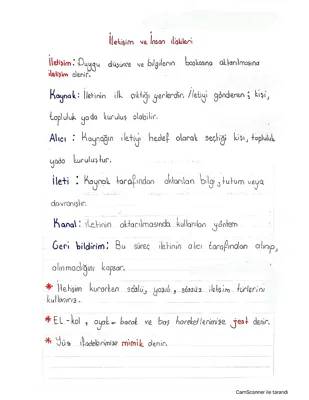 İletişim ve İnsan ilişkileri
İletişim: Duygu düşünce ve bilgilerin başkasına aktarılmasına
iletişim denir.
Kaynak: İletinin ilk çıktığı yerlerdir. İletiyi gönderen; kişi,
topluluk yada kuruluş olabilir.
Alıcı: Kaynağın iletiyi hedef olarak seçtiği kişi, topluluk
yada kuruluştur.
İleti: Kaynak tarafından aktarılan bilgi, tutum veya
davranıştır.
Kanal: iletinin aktarılmasında kullanılan yöntem
Geri bildirim: Bu süreç iletinin alıcı tarafından alınıp,
alınmadığını kapsar.
* İletişim kurarken sözlü, yazılı, sözsüz iletişim türlerini
kullanırız.
* EL-kol, ayak-bacak ve baş hareketlerimize jest denir.
* Yüz ifadelerimize mimik denir.
CamScanner ile tarandı